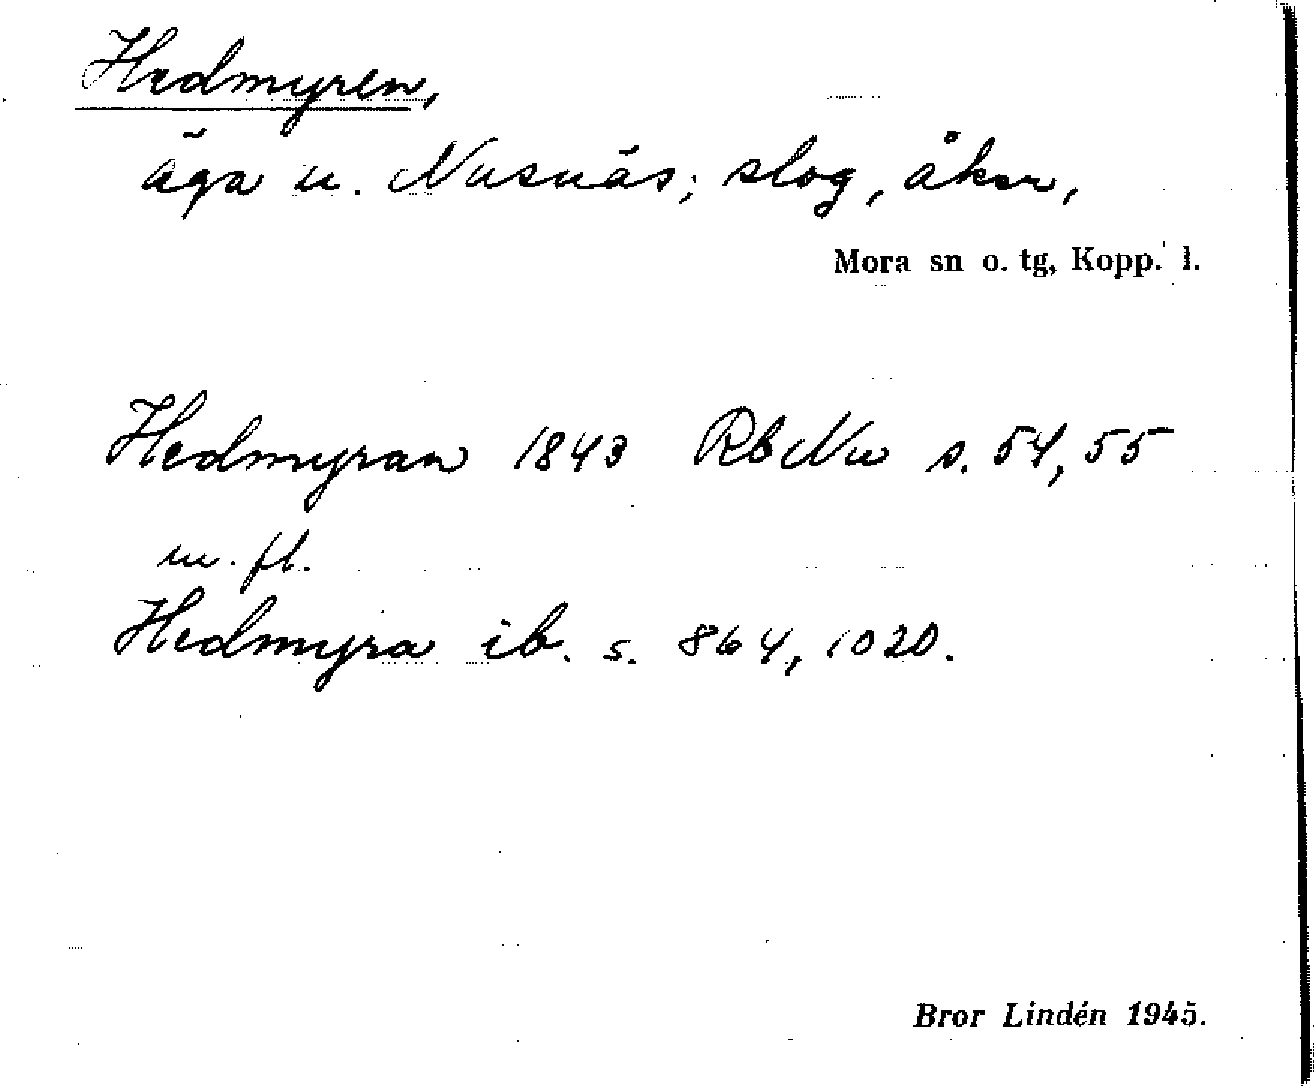 Hedmyren,
äga u. Nusnäs; slog, åker,
Mora sn o. tg, Kopp. l.
Hedmyran 1843 RbNu s. 54, 55
m. fl.
Hedmyra ib. s. 864, 1020.
Bror Lindén 1945.